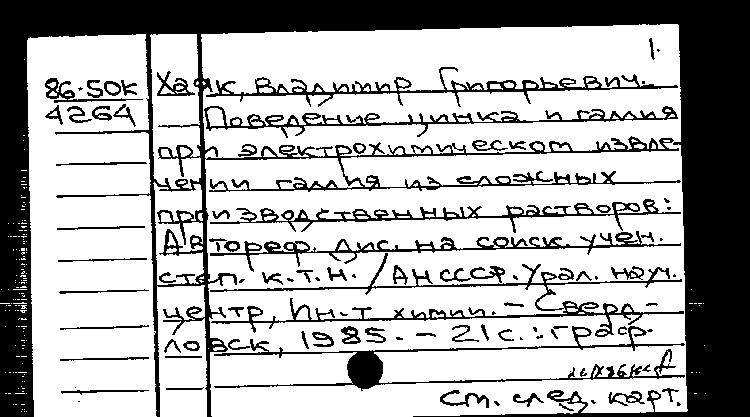 1.
86-50к Хаяк, Владимир Григорьевич.
4264 Поведение цинка и галлия
при электрохимическом извле-
чении галлия из сложных
производственных растворов:
Автореф. дис. на соиск. учен.
степ. к.т.н. / АН СССР. Урал. науч.
центр, Ин-т химии. – Сверд-
ловск, 1985. – 21 с. : граф.
См. след. карт.